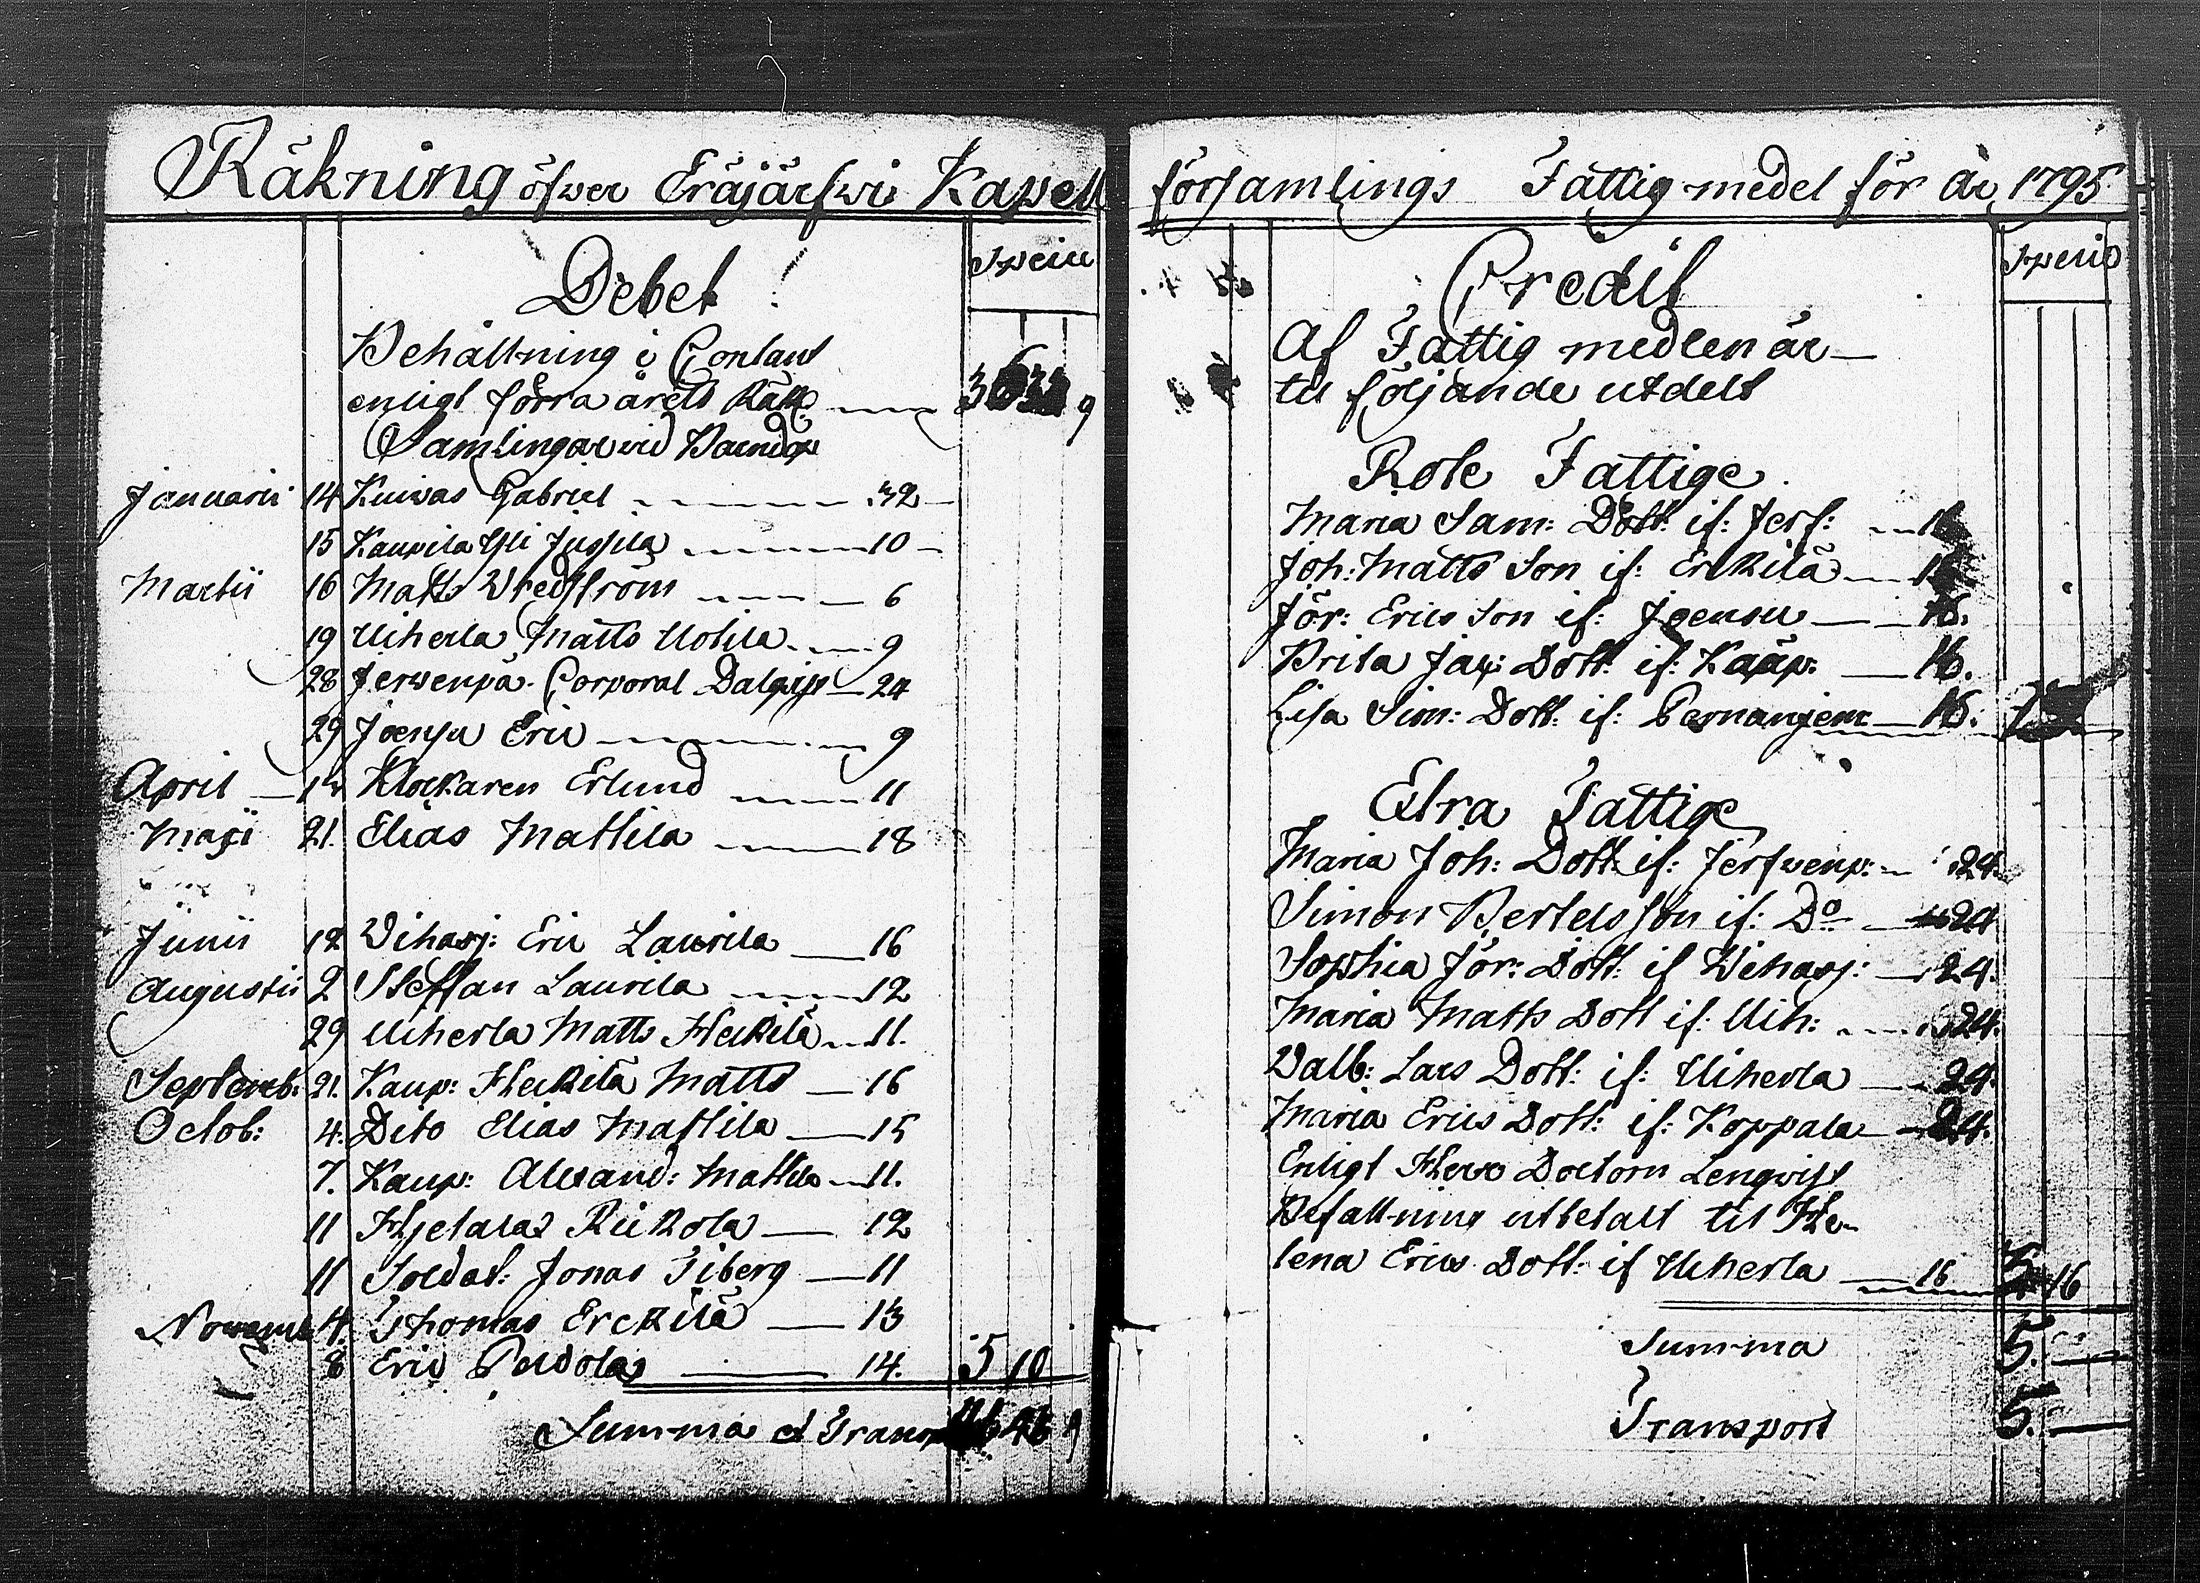 Räkning öfwer Eräjärfwi Kapell
Debet
Specie
Behållning i Contant
enligt förra årets Räkn: 9
Samlingar vid Barndop
Januarii 14 Kuivas Gabriel 32
15 Kaupila Yli Jussila 10
Martii 16 Matts Wredström 6
19 Uiherla Matts Uotila 9
28 Jerwenpä Corporal 24
29 Joensu Eric 9
April Klockaren Erlund 11
Maji 21. Elias Mattila 18
Junii 12 Vihasj: Eric Laurila 16
Augustii 2 Steffan Laurila 12
29 Uiherla Matts Heikilä 11.
Septemb: 21. Kaup: Heikilä Matts 16
Octob: 4. Dito Elias Mattila 15
7. Kaup: Alexand: Mattila 11.
11 Hjetalas Rickola 12
11 Soldat: Jonas Tiberg 11
Novemb 4. Thomas Erckilä 13
8 Eric 14. 5 10
Summa et Transp 9
församlings Fattig medel för år 1795
Credit
Specie
Af Fattig medlen är
til följande utdelt
Rote Fattige.
Maria Sam: Dott: if: Jerf:
Joh: Matts Son if: Erkilä
Jör: Erics Son if: Joensu 16.
Brita Jac: Dott: if: Kaup: 16.
Lisa Sim: Dott: if: 16.
Extra Fattige
Maria Joh: Dott: if: Jerfwenp: 24.
Simon Bertels son if: Do 24
Sophia Jör: Dott: if Wihasj: 24.
Maria Matts Dott if: Uih: 24.
Walb: Lars Dott: if: Uiherla 24.
Maria Erics Dott: if: Koppala 24.
Enligt Herr Doctorn Lenqwist
Befallning utbetalt til He-
lena Erics Dott: if Uiherla 16 16
Summa 5.
Transport 5.